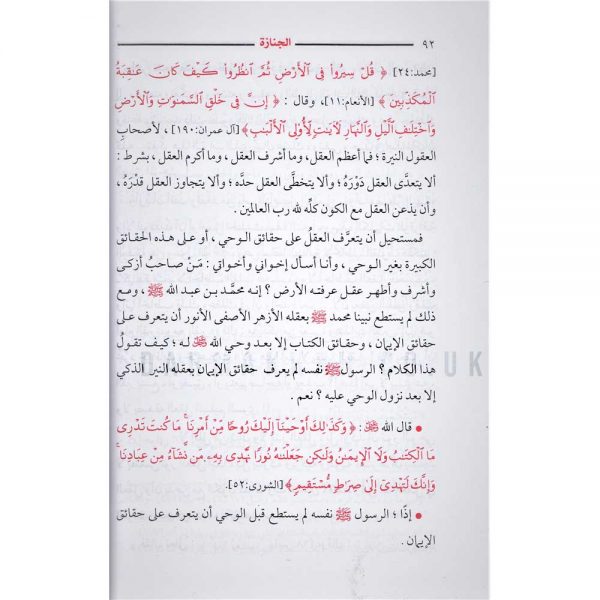 ٩٢ الجنازة
[محمد:٢٤] ﴿ قُلْ سِيرُوا۟ فِى ٱلْأَرْضِ ثُمَّ ٱنظُرُوا۟ كَيْفَ كَانَ عَـٰقِبَةُ
ٱلْمُكَذِّبِينَ ﴾ [الأنعام:١١]، وقال : ﴿ إِنَّ فِى خَلْقِ ٱلسَّمَـٰوَٰتِ وَٱلْأَرْضِ
وَٱخْتِلَـٰفِ ٱلَّيْلِ وَٱلنَّهَارِ لَـَٔايَـٰتٍ لِّأُو۟لِى ٱلْأَلْبَـٰبِ ﴾ [آل عمران:١٩٠] ، لأصحاب
العقول النيرة ؛ فما أعظم العقل، وما أشرف العقل، وما أكرم العقل ، بشرط :
ألا يتعدَّى العقل دَوْرَهُ ؛ وألا يتخطَّى العقل حدَّه ؛ وألا يتجاوز العقل قدْرَهُ ،
وأن يذعن العقل مع الكون كلِّه لله رب العالمين .
فمستحيل أن يتعرَّف العقلُ على حقائق الوحي ، أو على هذه الحقائق
الكبيرة بغير الوحي ، وأنا أسأل إخواني وأخواتي : مَنْ صاحبُ أزكى
وأشرف وأطهر عقل عرفته الأرض ؟ إنه محمد بن عبد الله ﷺ ، ومع
ذلك لم يستطع نبينا محمد ﷺ بعقله الأزهر الأصفى الأنور أن يتعرف على
حقائق الإيمان ، وحقائق الكتاب إلا بعد وحي الله له ؛ كيف تقولُ
هذا الكلام ؟ الرسول ﷺ نفسه لم يعرف حقائق الإيمان بعقله النير الذكي
إلا بعد نزول الوحي عليه ؟ نعم .
• قال الله : ﴿ وَكَذَٰلِكَ أَوْحَيْنَآ إِلَيْكَ رُوحًا مِّنْ أَمْرِنَا ۚ مَا كُنتَ تَدْرِى
مَا ٱلْكِتَـٰبُ وَلَا ٱلْإِيمَـٰنُ وَلَـٰكِن جَعَلْنَـٰهُ نُورًا نَّهْدِى بِهِۦ مَن نَّشَآءُ مِنْ عِبَادِنَا ۚ
وَإِنَّكَ لَتَهْدِىٓ إِلَىٰ صِرَٰطٍ مُّسْتَقِيمٍ ﴾ [الشورى:٥٢].
• إذًا ؛ الرسول ﷺ نفسه لم يستطع قبل الوحي أن يتعرف على حقائق
الإيمان .